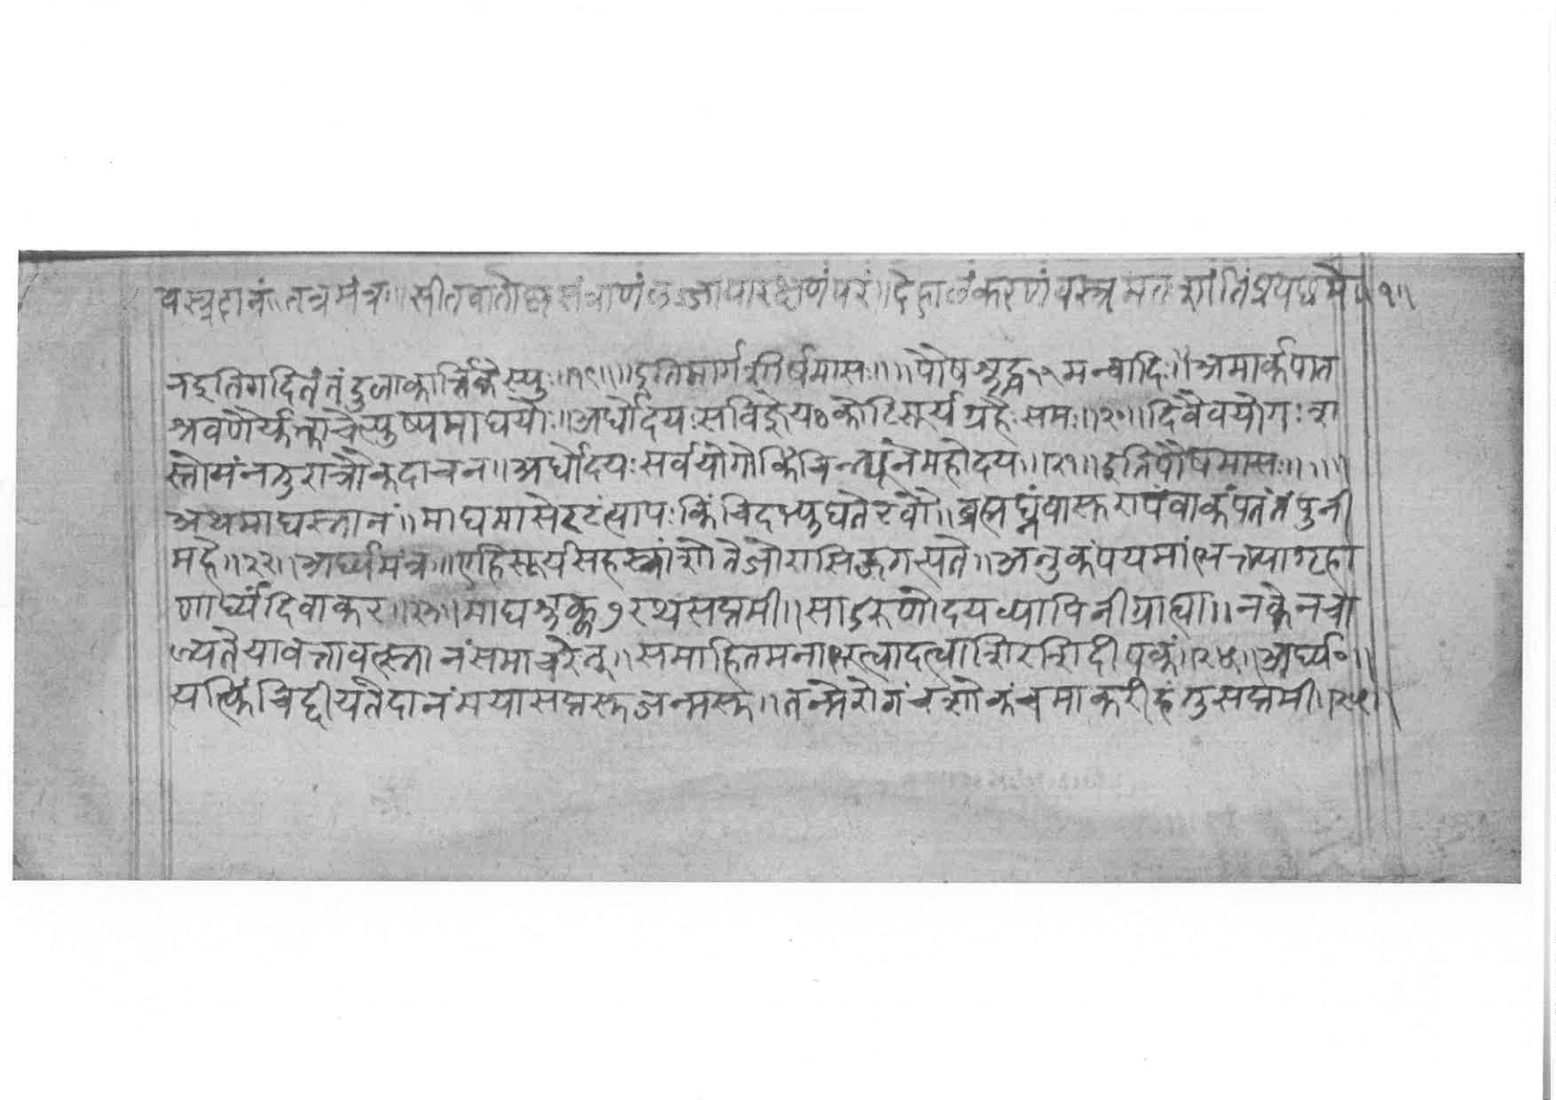 वस्त्रदानं॥ तत्र मंत्रः॥ सीतवातोष्णसंत्राणं लज्जायारक्षणंपरं॥ देहालंकरणं वस्त्र मतः शांतिं प्रयछमे॥१॥
च इतिगदितं तंदुला कार्त्तिके स्युः॥१९॥ ॥इतिमार्गशीर्षमासः॥ ॥पौषशुद्ध ११ मन्वादिः॥ अमार्कपात
श्रवणैर्युक्ताचेत्पुष्यमाघयोः॥ अर्धोदयः सविज्ञेयः कोटिसूर्यग्रहैः समः॥२०॥ दिवैवयोगः श
स्तोयंनतुरात्रौकदाचन॥ अर्धोदयः सर्वयोगोकिंचिन्न्यूनंमहोदय॥२१॥ इतिपौषमासः॥ ॥
अथमाघस्नानं॥ माघमासेरटंत्यापः किंचिदभ्युद्यतेरवौ॥ ब्रह्मघ्नंवासुरापंवाकंपतंतंपुनी
महे॥२२॥ अर्घ्यमंत्रः॥ एहिसूर्यसहस्त्रांशोतेजोरासिजगत्पते॥ अनुकंपयमांभक्त्यागृहा
णार्घ्यंदिवाकर॥२३॥ माघशुक्ल ७ रथसप्तमी॥ साऽरुणोदयव्यापिनीग्राह्या॥ नकेनचा
ल्यतेयावत्तावत्स्नानंसमाचरेत्॥ समाहितमनाभूत्वादत्वाशिरशिदीपकं॥२४॥ अर्घ्यं॰॥
यत्किंचिद्दीयतेदानंमयासप्तसुजन्मसु॥ तन्मेरोगंचशोकंचमाकरीहंतुसप्तमी॥२५॥